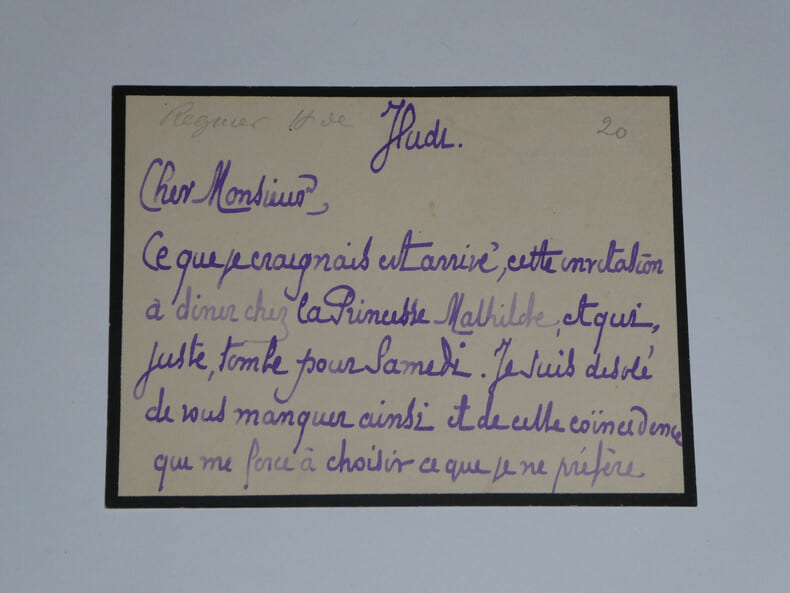 Regnier H de 20
Jeudi.
Cher Monsieur,
Ce que je craignais est arrivé, cette invitation
à diner chez la Princesse Mathilde, et qui,
juste, tombe pour Samedi. Je suis desolé
de vous manquer ainsi et de cette coïncedence
qui me force à choisir ce que je ne préfère